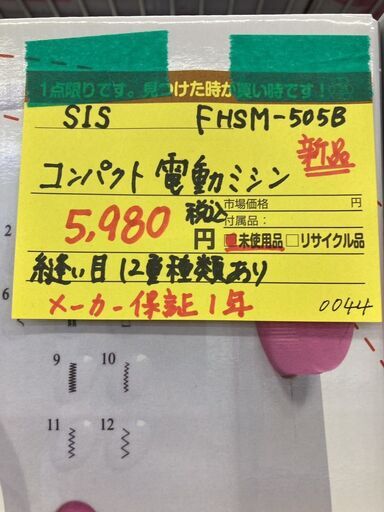 1点限りです。見つけた時が買い時です！
SIS FHSM-505B
新品
コンパクト電動ミシン
市場価格 円
5,980円 税込
付属品：
未使用品 □リサイクル品
縫い目12種類あり
メーカー保証1年
0044
2
6
9 10
11 12